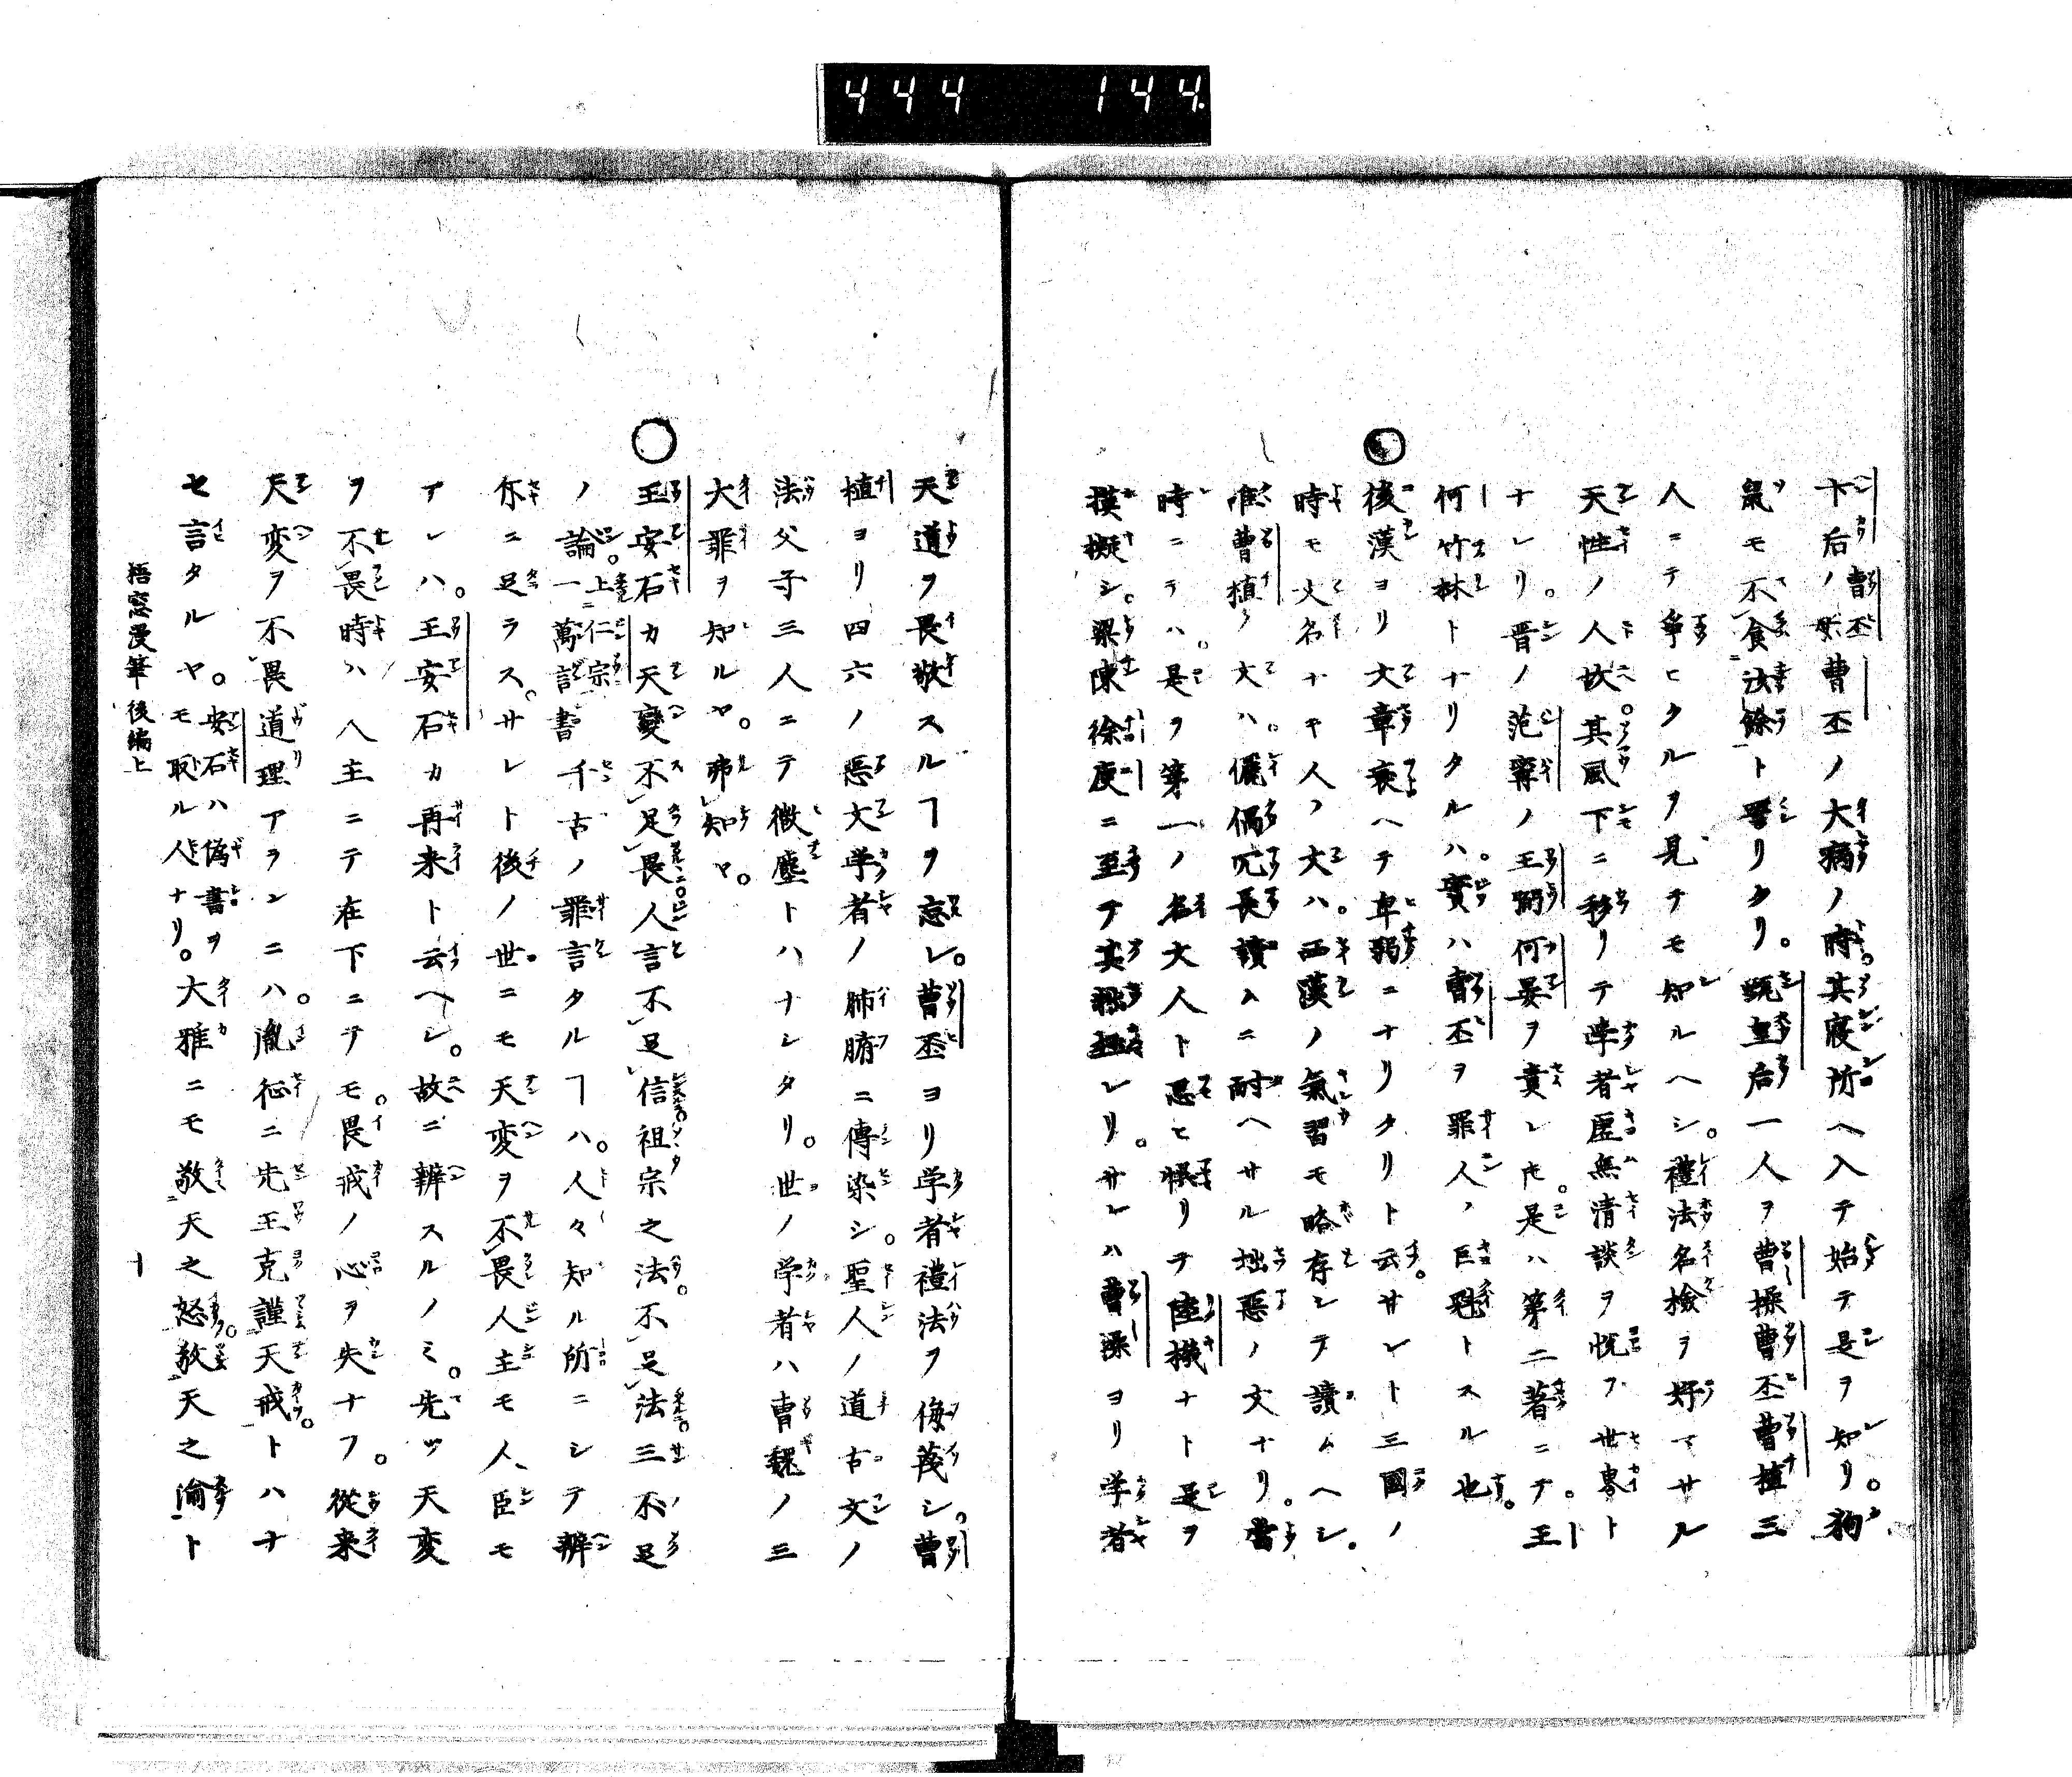 444 144.
卞后ノ姒曹丕ノ大病ノ時。其寝所ヘ入テ始テ是ヲ知リ。狗
鼠モ不食汝餘ト詈リタリ。甄皇后一人ヲ曹操曹丕曹植三
人ニテ爭ヒタルヲ見テモ知ルヘシ。禮法名檢ヲ好マサル
天性ノ人故。其風下ニ移リテ學者虛無清談ヲ悦フ世界ト
ナレリ。晋ノ范寗ノ王弼何晏ヲ責レ𪜈。是ハ第二著ニテ。王
何竹林トナリタルハ。實ハ曹丕ヲ罪人ノ巨魁トスル也。
○後漢ヨリ文章衰ヘテ卑弱ニナリタリト云。サレト三國ノ
時モ文名ナキ人ノ文ハ。西漢ノ氣習モ略存シテ讀ムヘシ。
唯曹植ノ文ハ。儷偶冗長讀ムニ耐ヘサル拙惡ノ文ナリ。當
時ニテハ。是ヲ第一ノ名文人ト思ヒ悞リテ陸機ナト是ヲ
摸擬シ。梁陳徐庾ニ至テ其極レリ。サレハ曹操ヨリ学者
天道ヲ畏敬スルヿヲ忘レ。曹丕ヨリ学者禮法ヲ侮蔑シ。曹
植ヨリ四六ノ惡文学者ノ肺腑ニ傳染シ。聖人ノ道古文ノ
法父子三人ニテ微塵トハナシタリ。世ノ学者ハ曹魏ノ三
大罪ヲ知ルヤ。弗知ヤ。
○王安石カ天變不足畏人言不足信祖宗之法。不足法三不足
ノ論。上仁宗一萬言書千古ノ罪言タルヿハ。人々知ル所ニシテ辨
尓ニ足ラス。サレト後ノ世ニモ天変ヲ不畏人主モ人臣モ
アレハ。王安石カ再来ト云ヘシ。故ニ辨スルノミ。先ツ天変
ヲ不畏時ハ人主ニテ在下ニテモ。畏戒ノ心ヲ失ナフ。從来
天変ヲ不畏道理アランニハ。胤征ニ先王克謹天戒。トハナ
セ言タルヤ。安石ハ偽書ヲモ取ル人ナリ。大雅ニモ敬天之怒。敬天之渝ト
梧窓漫筆 後編上
十